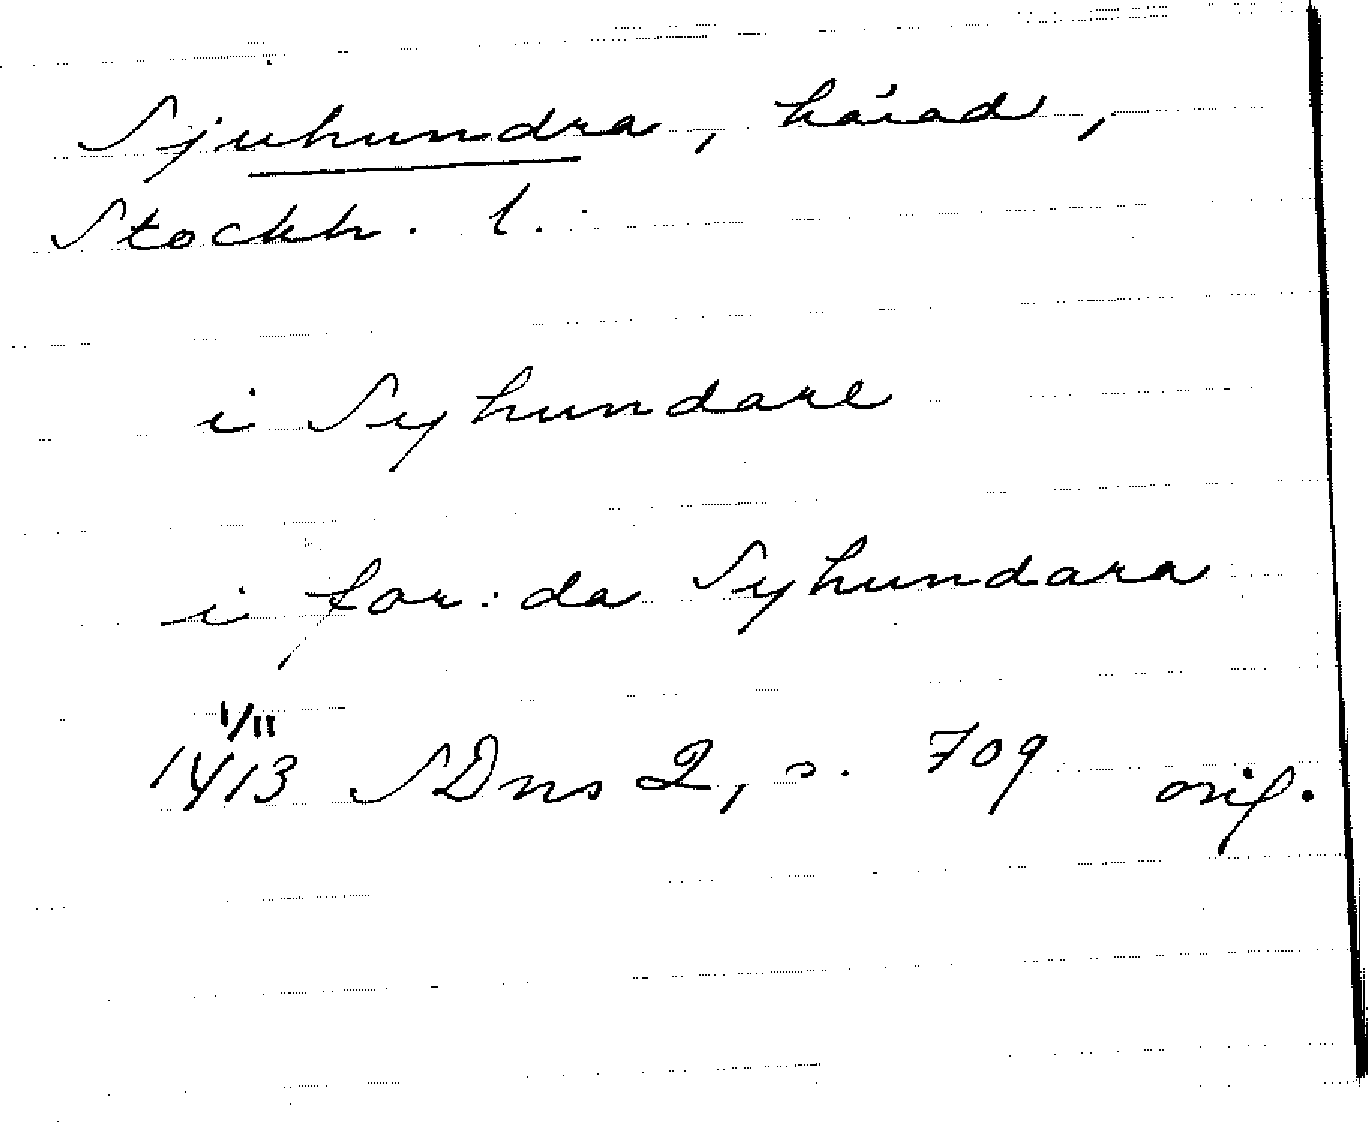 Sjuhundra, härad,
Stockh. l.
i Syhundare
i for:da Syhundara
1/11
1413 SDns 2, s. 709 orig.